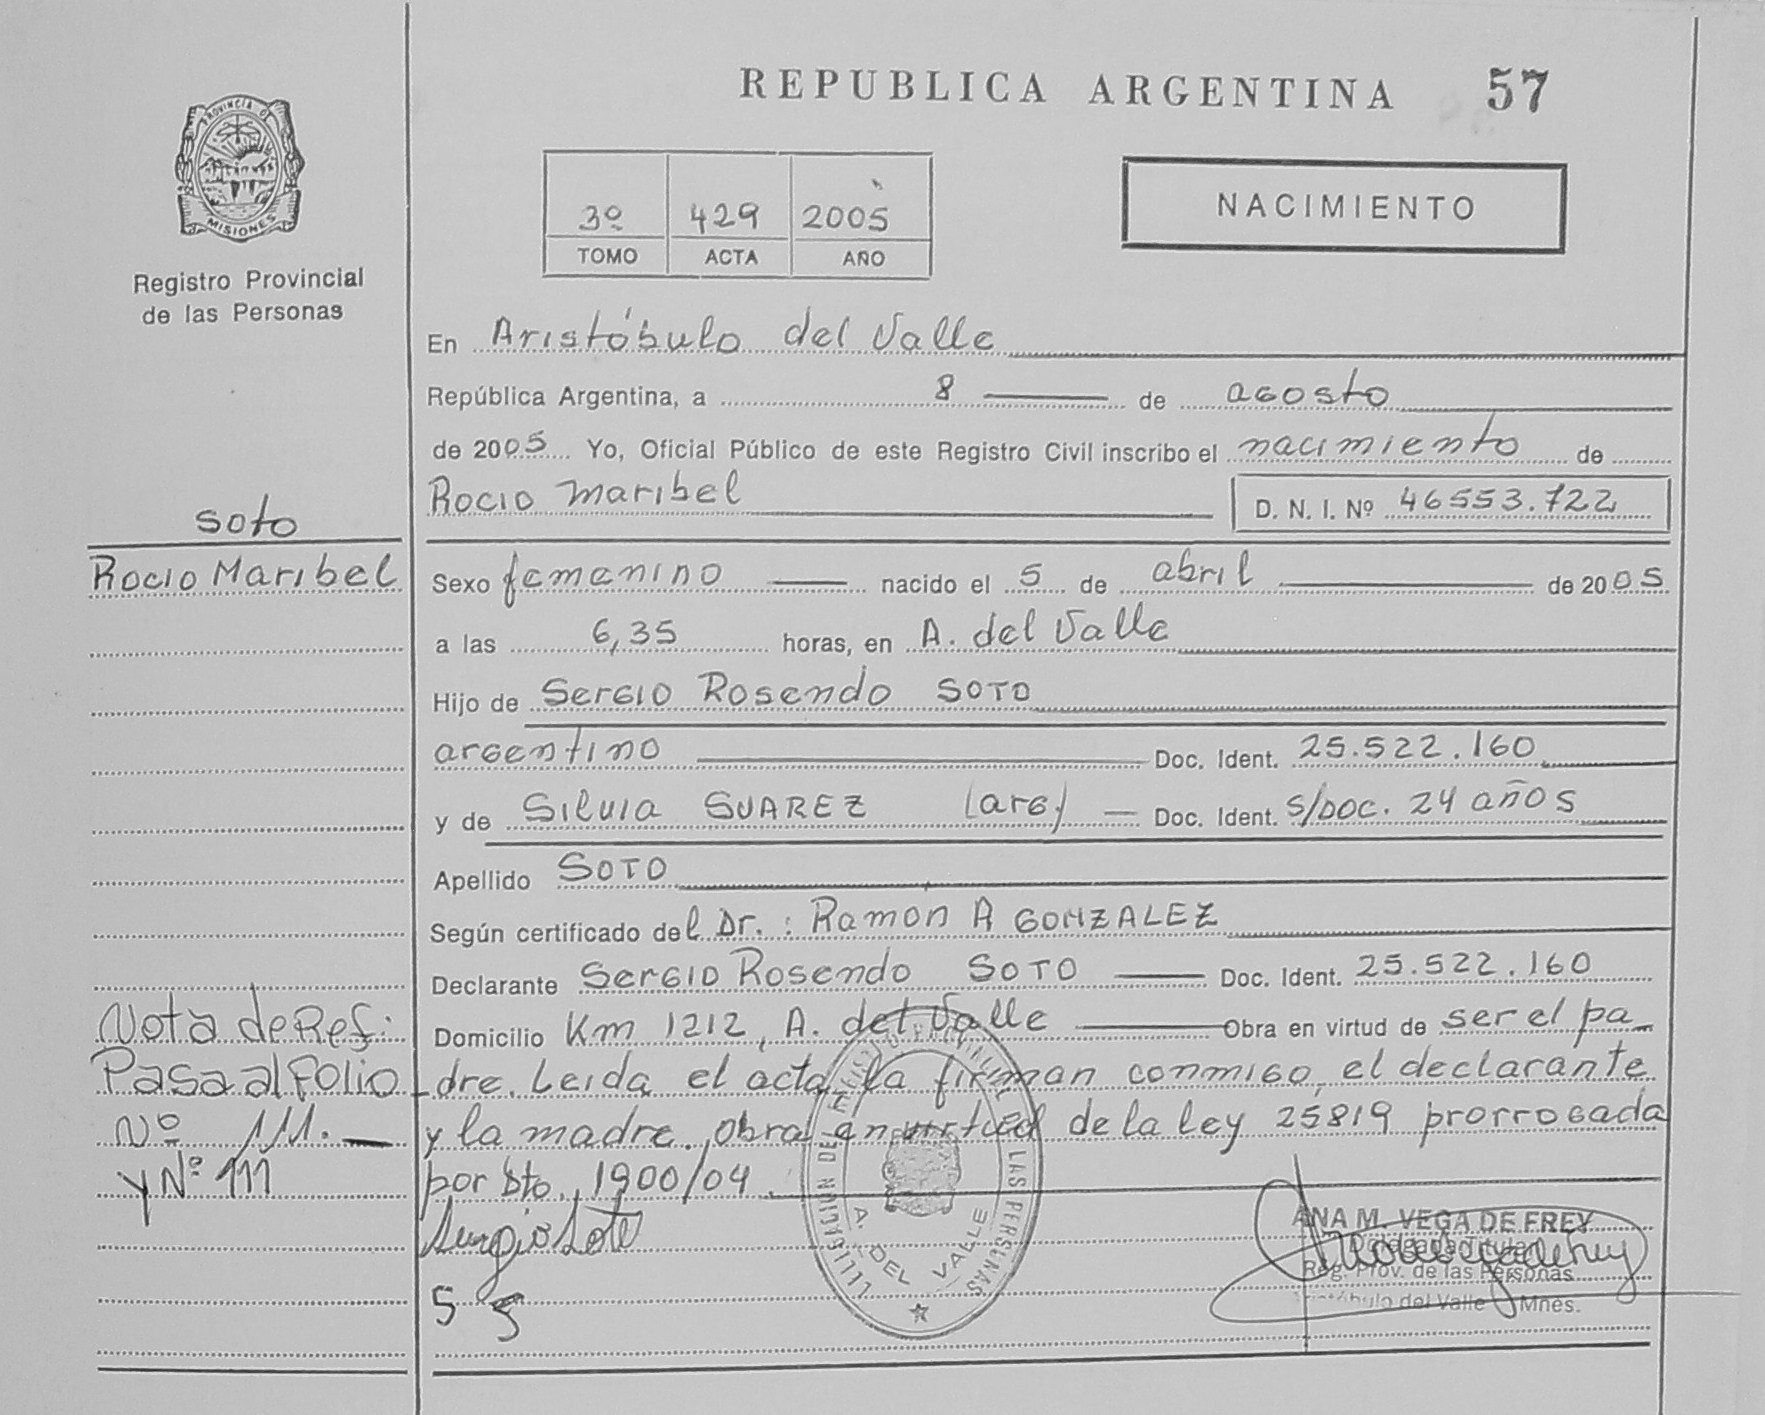 REPUBLICA ARGENTINA 57
PROVINCIA DE MISIONES
Registro Provincial
de las Personas
3º 429 2005
TOMO ACTA AÑO
NACIMIENTO
En Aristóbulo del Valle
República Argentina, a 8 de agosto
de 2005 Yo, Oficial Público de este Registro Civil inscribo el nacimiento de
Rocio Maribel D. N. I. Nº 46553.722
Soto
Rocio Maribel
Sexo femenino nacido el 5 de abril de 2005
a las 6,35 horas, en A. del Valle
Hijo de Sergio Rosendo SOTO
argentino Doc. Ident. 25.522.160
y de Silvia SUAREZ (arg) Doc. Ident. S/DOC. 24 años
Apellido SOTO
Según certificado del Dr.: Ramon A GONZALEZ
Declarante Sergio Rosendo SOTO Doc. Ident. 25.522.160
Domicilio Km 1212, A. del Valle Obra en virtud de ser el pa_
dre. Leida el acta, la firman conmigo, el declarante
y la madre. Obra en virtud de la Ley 25819 prorrogada
por Dto. 1900/04
Nota de Ref:
Pasa al Folio
Nº 111.
y Nº 111
Sergio Soto
S S
A. DEL VALLE
ANA M. VEGA DE FREY
Delegada Titular
Reg. Prov. de las Personas
Aristóbulo del Valle Mnes.